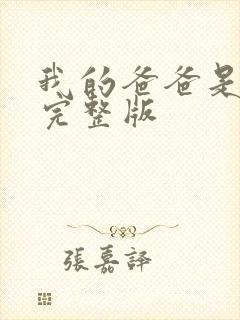 我的爸爸是
完整版
張嘉譯